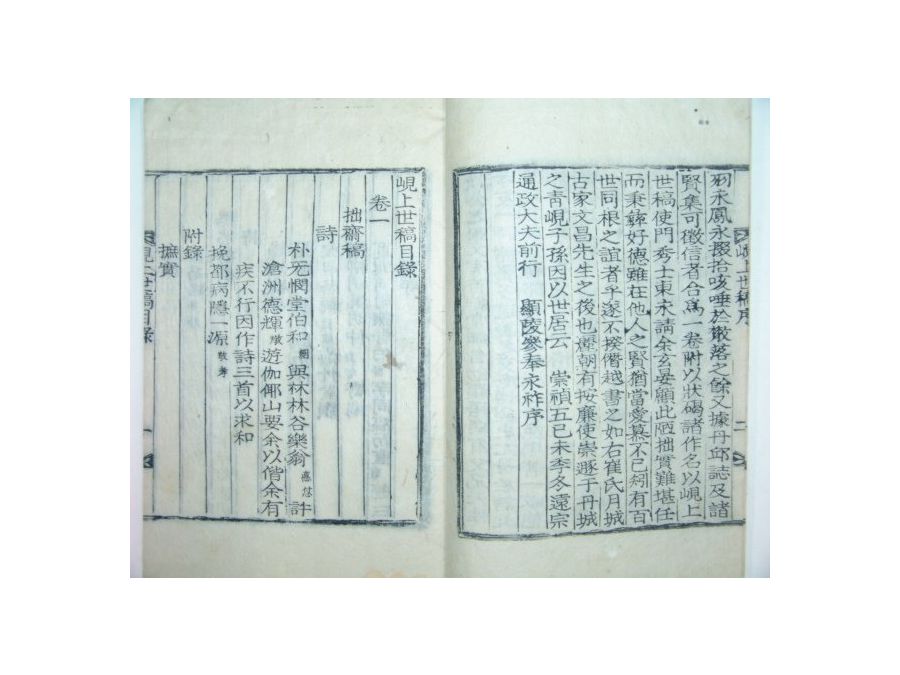 列永鳳永掇拾咳唾於散落之餘又據丹邱誌及諸
賢集可徵信者合爲 卷附以狀碣諸作名以峴上
世稿使門秀士東永請余玄晏顧此陋拙實難堪任
而秉彝好德雖在他人之賢猶當愛慕不已矧有百
世同根之誼者乎遂不揆僭越書之如右崔氏月城
古家文昌先生之後也麗朝有按廉使崇遯于丹城
之靑峴子孫因以世居云 崇禎五己未季冬遠宗
通政大夫前行 顯陵參奉永祚序
峴上世稿序
二
峴上世稿目錄
卷一
拙齋稿
詩
朴无悶堂伯和絪與林林谷樂翁眞怤許
滄洲德輝燉遊伽倻山要余以偕余有
疾不行因作詩三首以求和
挽郭病隱一源
附錄
摭實
峴上世稿目錄
一